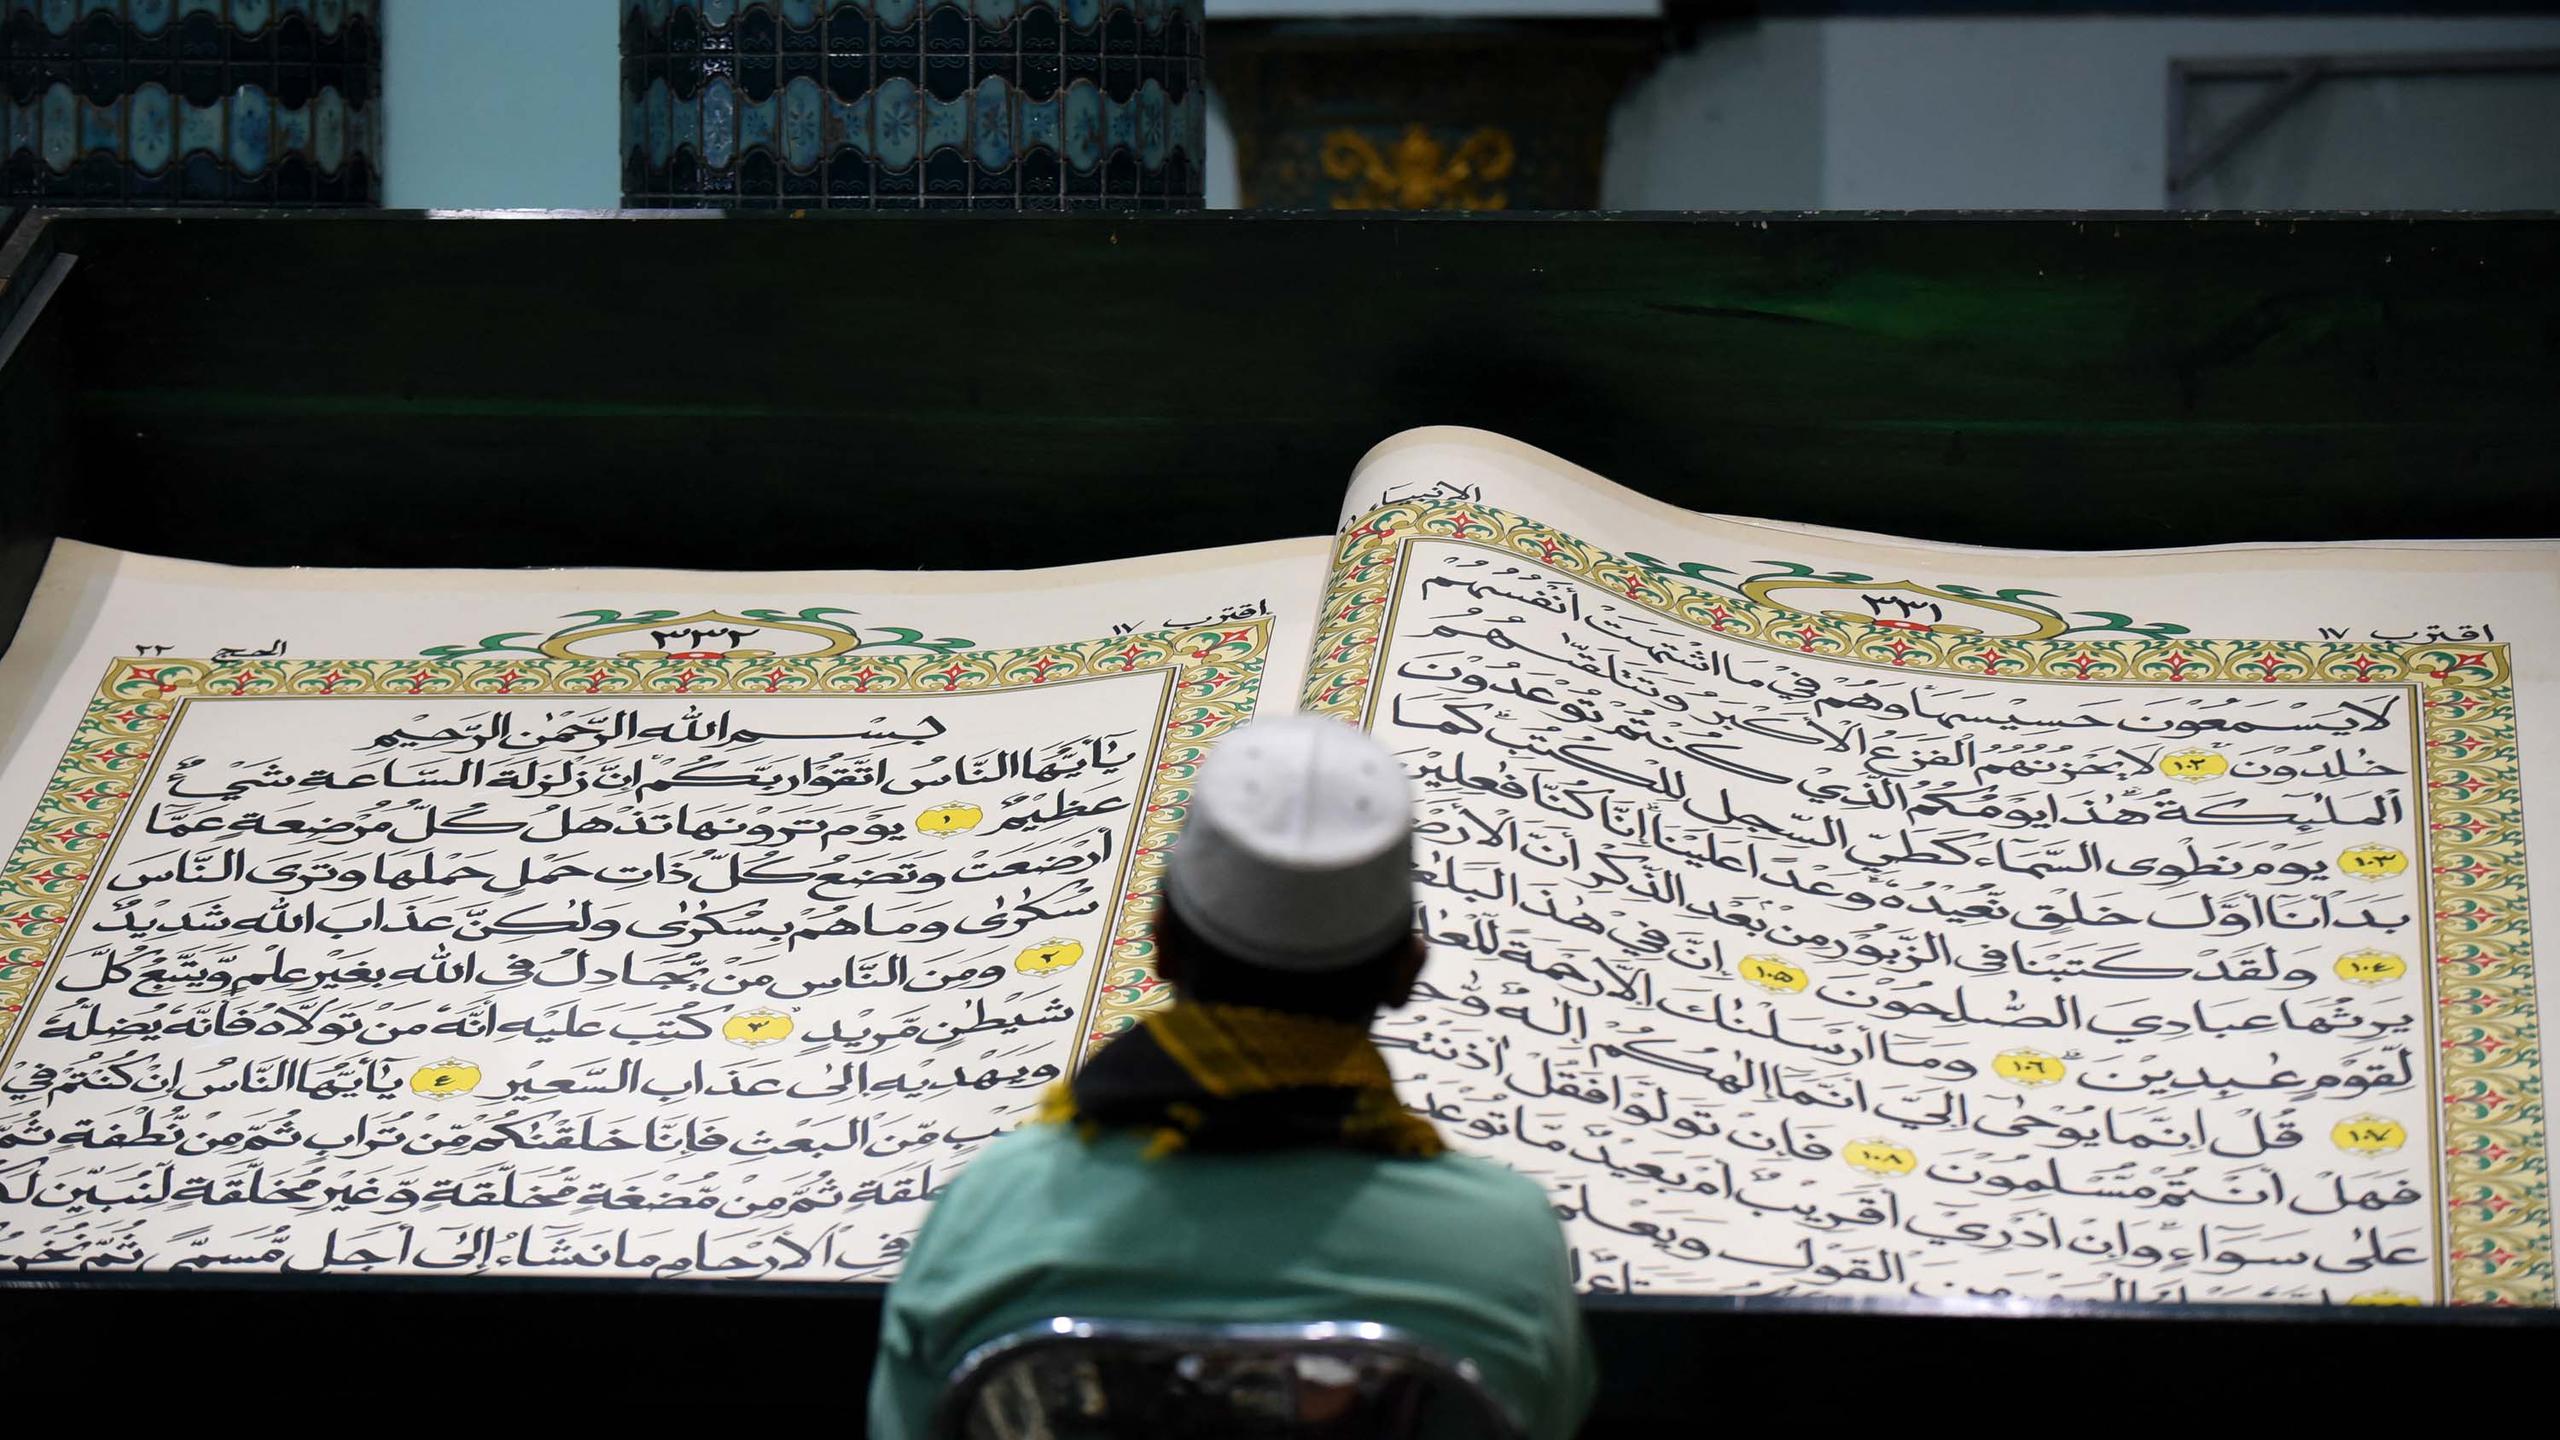 اقترب ١٧
٣٣١
الانبياء
لَا يَسْمَعُوْنَ حَسِيْسَهَا وَهُمْ فِيْ مَا اشْتَهَتْ أَنْفُسُهُمْ
خٰلِدُوْنَ ١٠٢ لَا يَحْزُنُهُمُ الْفَزَعُ الْأَكْبَرُ وَتَتَلَقّٰىهُمُ
الْمَلٰٓئِكَةُ هٰذَا يَوْمُكُمُ الَّذِيْ كُنْتُمْ تُوْعَدُوْنَ
١٠٣ يَوْمَ نَطْوِى السَّمَآءَ كَطَيِّ السِّجِلِّ لِلْكُتُبِ كَمَا
بَدَأْنَآ أَوَّلَ خَلْقٍ نُّعِيْدُهٗ وَعْدًا عَلَيْنَا إِنَّا كُنَّا فٰعِلِيْنَ
١٠٤ وَلَقَدْ كَتَبْنَا فِى الزَّبُوْرِ مِنْ بَعْدِ الذِّكْرِ أَنَّ الْأَرْضَ
يَرِثُهَا عِبَادِيَ الصّٰلِحُوْنَ ١٠٥ إِنَّ فِيْ هٰذَا
لِّقَوْمٍ عٰبِدِيْنَ ١٠٦ وَمَآ أَرْسَلْنٰكَ إِلَّا رَحْمَةً
١٠٧ قُلْ إِنَّمَا يُوْحٰٓى إِلَيَّ أَنَّمَآ إِلٰهُكُمْ إِلٰهٌ
فَهَلْ أَنْتُمْ مُّسْلِمُوْنَ ١٠٨ فَإِنْ تَوَلَّوْا فَقُلْ
عَلٰى سَوَآءٍ وَإِنْ أَدْرِيْٓ أَقَرِيْبٌ أَمْ بَعِيْدٌ مَّا
مِنَ الْقَوْلِ وَيَعْلَمُ
اقترب ١٧
٣٣٢
الحج ٢٢
بِسْمِ اللّٰهِ الرَّحْمٰنِ الرَّحِيْمِ
يٰٓأَيُّهَا النَّاسُ اتَّقُوْا رَبَّكُمْ إِنَّ زَلْزَلَةَ السَّاعَةِ شَيْءٌ
عَظِيْمٌ ١ يَوْمَ تَرَوْنَهَا تَذْهَلُ كُلُّ مُرْضِعَةٍ عَمَّآ
أَرْضَعَتْ وَتَضَعُ كُلُّ ذَاتِ حَمْلٍ حَمْلَهَا وَتَرَى النَّاسَ
سُكٰرٰى وَمَا هُمْ بِسُكٰرٰى وَلٰكِنَّ عَذَابَ اللّٰهِ شَدِيْدٌ
٢ وَمِنَ النَّاسِ مَنْ يُّجَادِلُ فِى اللّٰهِ بِغَيْرِ عِلْمٍ وَّيَتَّبِعُ كُلَّ
شَيْطٰنٍ مَّرِيْدٍ ٣ كُتِبَ عَلَيْهِ أَنَّهٗ مَنْ تَوَلَّاهُ فَأَنَّهٗ يُضِلُّهٗ
وَيَهْدِيْهِ إِلٰى عَذَابِ السَّعِيْرِ ٤ يٰٓأَيُّهَا النَّاسُ إِنْ كُنْتُمْ فِيْ
مِّنَ الْبَعْثِ فَإِنَّا خَلَقْنٰكُمْ مِّنْ تُرَابٍ ثُمَّ مِنْ نُّطْفَةٍ ثُمَّ
ثُمَّ مِنْ مُّضْغَةٍ مُّخَلَّقَةٍ وَّغَيْرِ مُخَلَّقَةٍ لِّنُبَيِّنَ
فِى الْأَرْحَامِ مَا نَشَآءُ إِلٰٓى أَجَلٍ مُّسَمًّى ثُمَّ